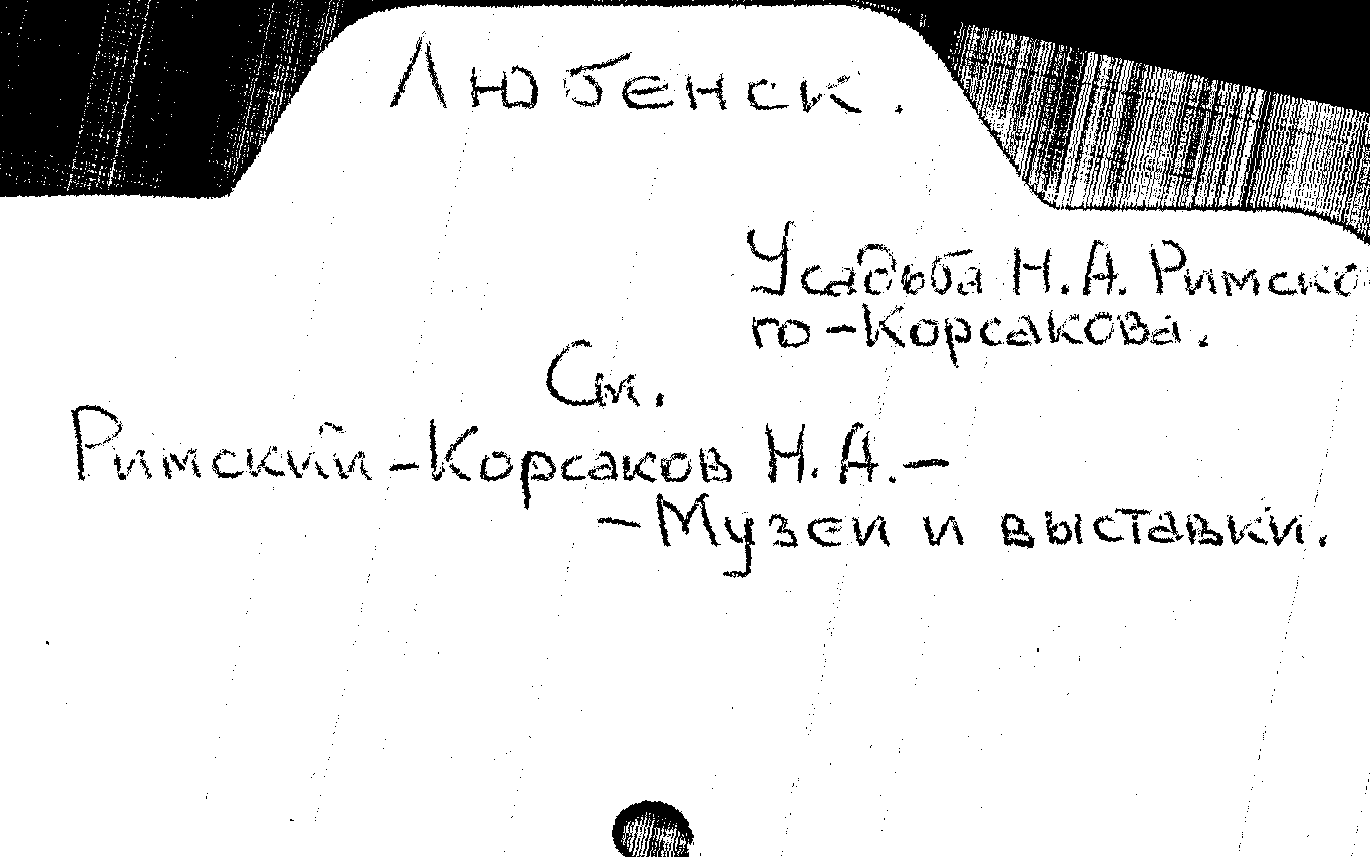 Любенск.
Усадьба Н.А. Римско
го-Корсакова.
См.
Римский-Корсаков Н.А.-
-Музеи и выставки.